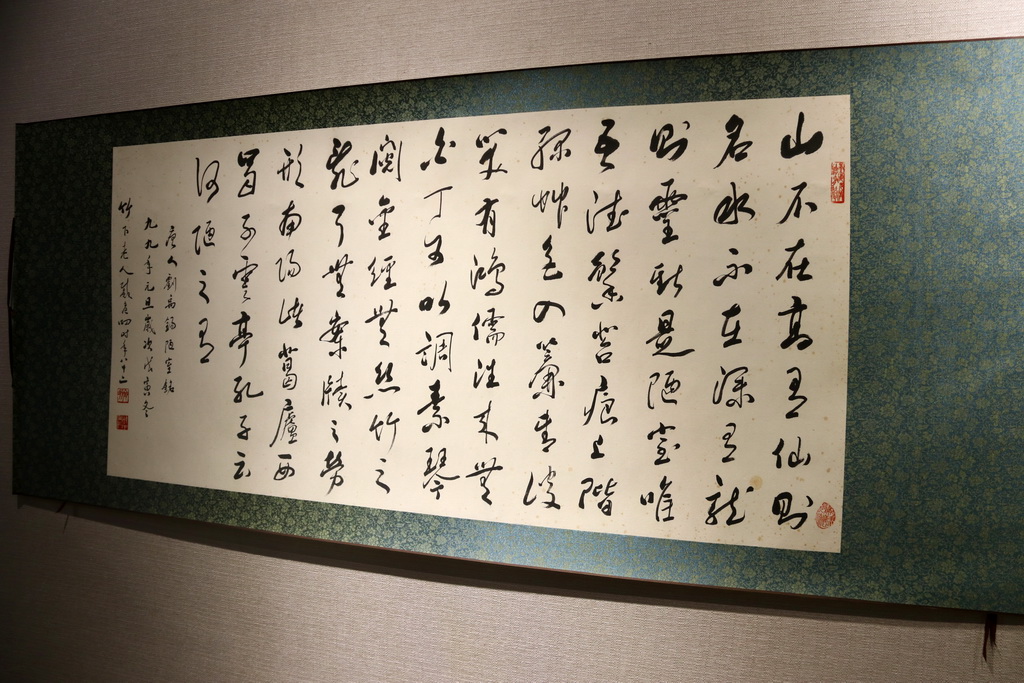 山不在高有仙則
名水不在深有龍
則靈斯是陋室唯
吾德馨苔痕上階
綠艸色入簾青談
笑有鴻儒往來無
白丁可以調素琴
閱金經無絲竹之
亂耳無案牘之勞
形南陽諸葛廬西
蜀子雲亭孔子云
何陋之有
唐人劉禹錫陋室銘
九九年元旦歲次戊寅冬
竹下老人時年八十二